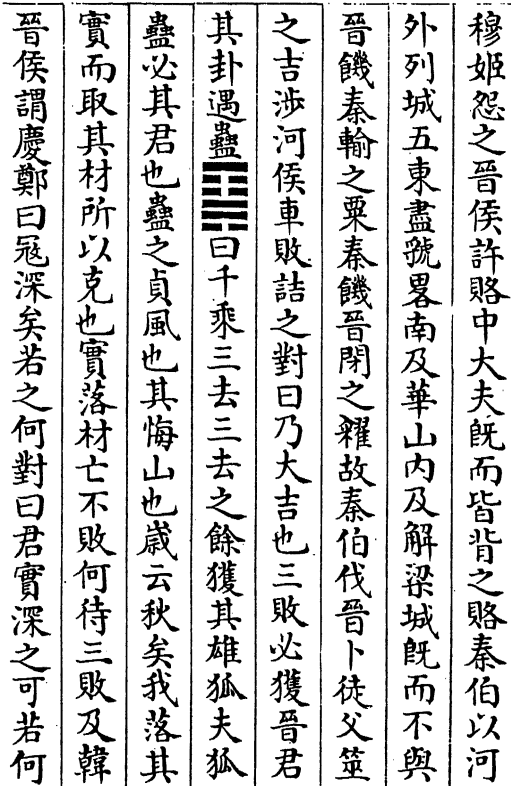 穆姬怨之晉侯許賂中大夫旣而皆背之賂秦伯以河
外列城五東盡虢畧南及華山內及解梁城旣而不與
晉饑秦輸之粟秦饑晉閉之糴故秦伯伐晉卜徒父筮
之吉涉河侯車敗詰之對曰乃大吉也三敗必獲晉君
其卦遇蠱䷑曰千乘三去三去之餘獲其雄狐夫狐
蠱必其君也蠱之貞風也其悔山也歲云秋矣我落其
實而取其材所以克也實落材亡不敗何待三敗及韓
晉侯謂慶鄭曰寇深矣若之何對曰君實深之可若何